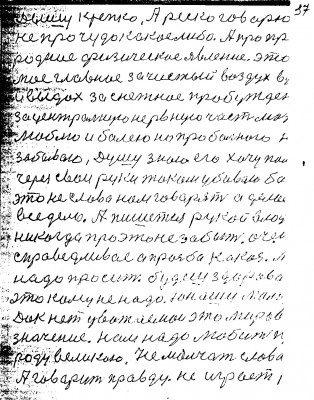 37
пишу крепко, А речь говорю
не про чудо какое либо. А про пр
родное физическое явление. это
мое главное за чистый воздух в
и выдох за снежное пробужден
за центральную нервную часть
люблю и болею но про больного н
забываю, Душу знаю его хочу
через свои руки таком убиваю бо
это не слова нам говарят а дела
все дело, А пишется рукой влюд
никогда про это не забыть, очен
справедливое а прозба какая. Я
надо просить будеш здорова
это кому не надо. юнаши
Док нет уважаемой это миров
значение. нам надо Любить п
роду великою. Не молчат слова
А говарит правду. не играет,